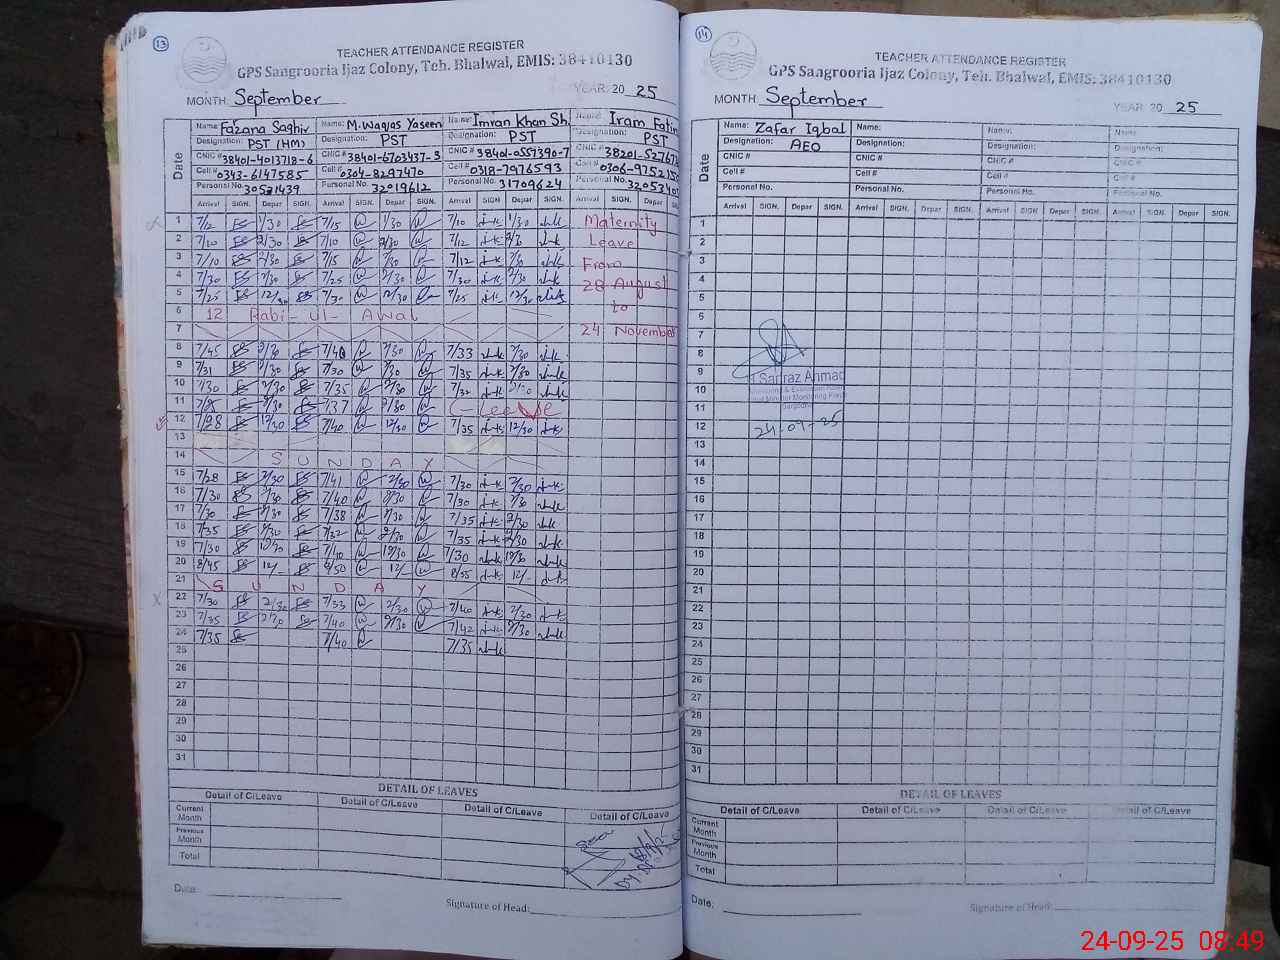 13
TEACHER ATTENDANCE REGISTER
GPS Sangrooria Ijaz Colony, Teh. Bhalwal, EMIS: 38410130
MONTH: September YEAR: 2025
Date
Name: Fazana Saghir Name: M. Waqas Yaseen Name: Imran Khan Sh. Name: Iram Fatim
Designation: PST (HM) Designation: PST Designation: PST Designation: PST
CNIC # 38401-4013718-6 CNIC # 38401-6703437-3 CNIC # 38401-0559390-7 CNIC # 38201-52767
Cell # 0343-6147585 Cell # 0304-8297470 Cell # 0318-7976593 Cell # 0306-9752150
Personal No. 30521439 Personal No. 32019612 Personal No. 31709624 Personal No. 3205340
Arrival SIGN. Depar SIGN. Arrival SIGN. Depar SIGN. Arrival SIGN. Depar SIGN. Arrival SIGN. Depar
1 7/12 1/30 7/15 1/30 7/10 1/30 Maternity
2 7/10 2/30 7/10 2/30 7/12 2/30 Leave
3 7/10 2/30 7/15 2/30 7/12 2/30 From
4 7/30 2/30 7/25 2/30 7/30 2/30 28 August
5 7/25 12/30 7/30 12/30 7/25 12/30 to
6 12 Rabi-ul-Awal
7 24 November
8 7/45 2/30 2/30 7/33 2/30
9 7/31 2/30 7/30 2/30 7/35 2/30
10 7/30 2/30 7/35 2/30 7/32
11 2/30 7/37 2/30 C-Leave
12 7/28 12/30 7/40 12/30 7/35 12/30
13
14 SUNDAY
15 7/28 2/30 7/41 2/30 7/30 2/30
16 7/30 2/30 7/40 2/30 7/30 2/30
17 7/30 2/30 7/38 2/30 7/35 2/30
18 7/35 2/30 7/32 2/30 7/35 2/30
19 7/30 7/40 7/30
20 8/45 12/- 8/50 12/- 8/55 12/-
21 SUNDAY
22 7/30 2/30 7/33 2/30 7/40 2/30
23 7/35 2/30 7/40 2/30 7/42 2/30
24 7/35 7/40 7/35
25
26
27
28
29
30
31
DETAIL OF LEAVES
Detail of C/Leave Detail of C/Leave Detail of C/Leave Detail of C/Leave
Current Month
Previous Month
Total
Date:
Signature of Head:
14
TEACHER ATTENDANCE REGISTER
GPS Sangrooria Ijaz Colony, Teh. Bhalwal, EMIS: 38410130
MONTH: September YEAR: 2025
Date
Name: Zafar Iqbal Name: Name: Name:
Designation: AEO Designation: Designation: Designation:
CNIC # CNIC # CNIC # CNIC #
Cell # Cell # Cell # Cell #
Personal No. Personal No. Personal No. Personal No.
Arrival SIGN. Depar SIGN. Arrival SIGN. Depar SIGN. Arrival SIGN. Depar SIGN. Arrival SIGN. Depar SIGN.
1
2
3
4
5
6
7
8
9 Sarfraz Ahmad
10
11
12 24-09-25
13
14
15
16
17
18
19
20
21
22
23
24
25
26
27
28
29
30
31
DETAIL OF LEAVES
Detail of C/Leave Detail of C/Leave Detail of C/Leave Detail of C/Leave
Current Month
Previous Month
Total
Date:
Signature of Head:
24-09-25 08:49